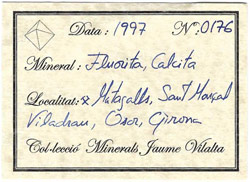 Data: 1997 Nº: 0176
Mineral: Fluorita, Calcita
Localitat: Matagalls, Sant Marçal
Viladrau, Osor, Girona
Col·lecció Minerals Jaume Vilalta